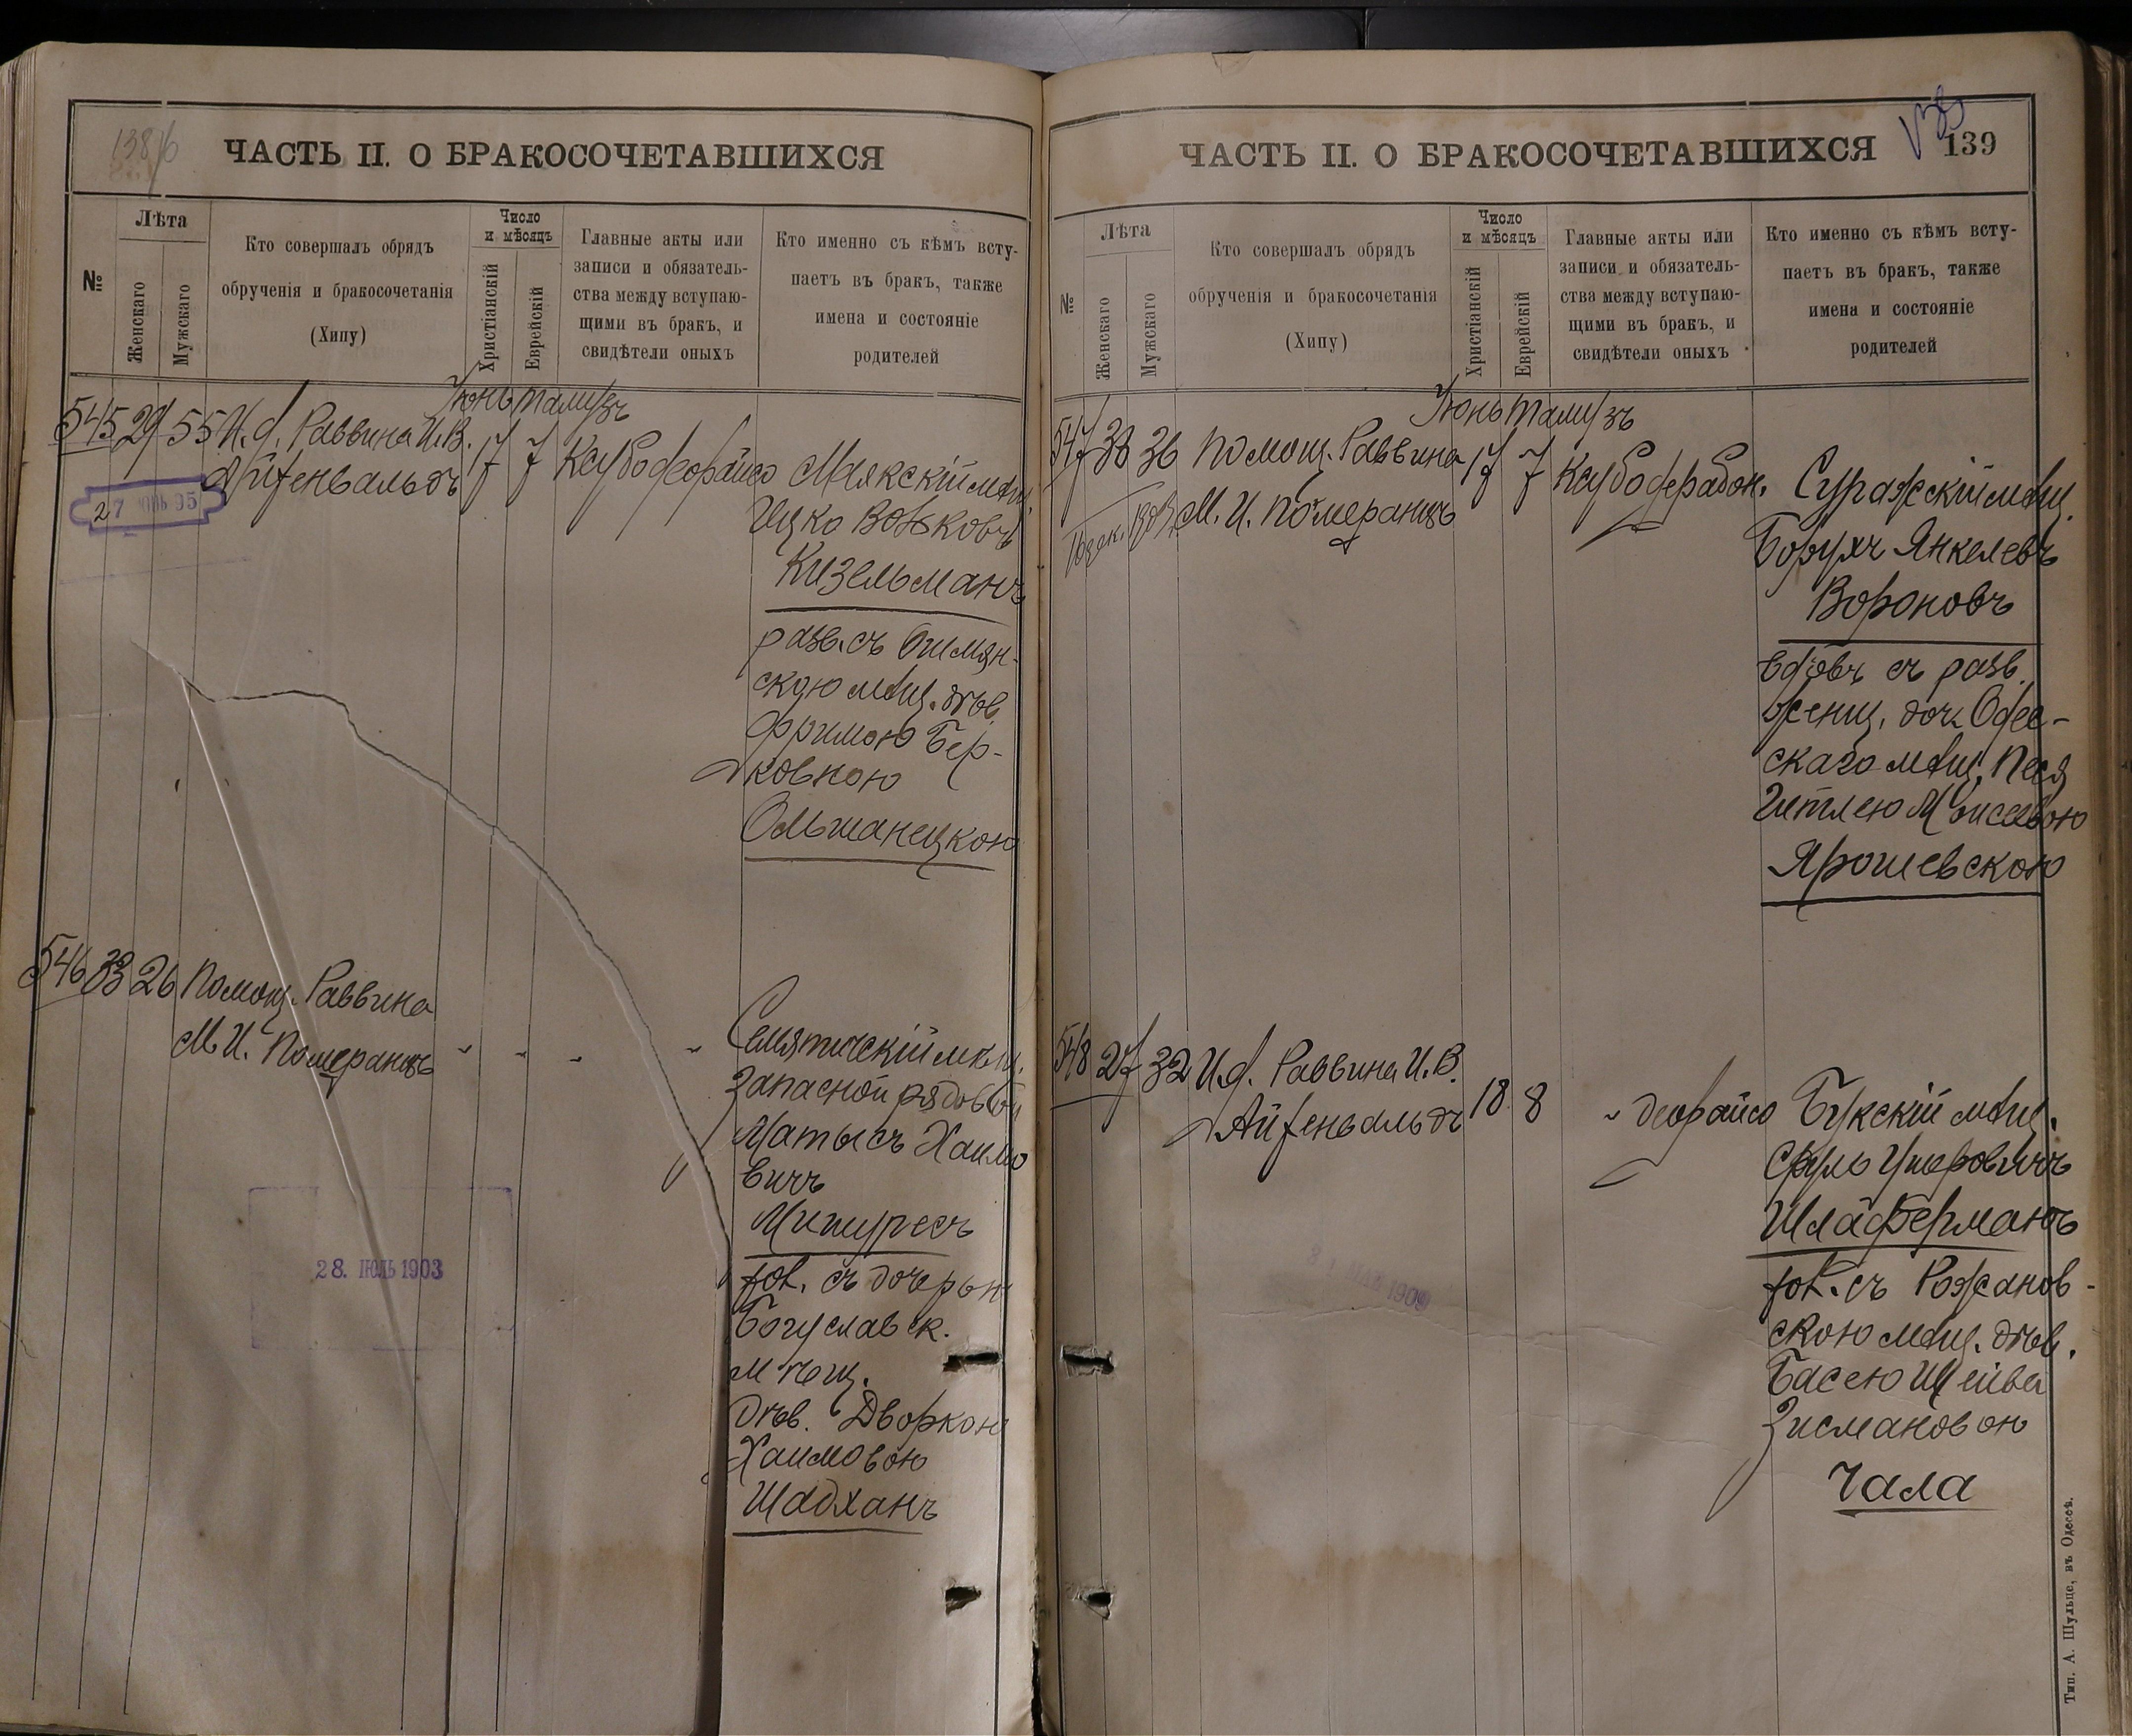 138
ЧАСТЬ II. О БРАКОСОЧЕТАВШИХСЯ
№
Лѣта
Женскаго
Мужскаго
Кто совершалъ обрядъ
обрученія и бракосочетанія
(Хипу)
Число
и мѣсяцъ
Христіанскій
Еврейскій
Главные акты или
записи и обязатель-
ства между вступаю-
щими въ бракъ, и
свидѣтели оныхъ
Кто именно съ кѣмъ всту-
паетъ въ бракъ, также
имена и состояніе
родителей
Іюнь Тамузъ
545 29 55 И. д. Раввина И. В.
Айзенвальдъ
17 7
27 ІЮНЬ 95
Маякскій мѣщ.
Ицко Вольковъ
Кизельманъ
разв. съ Ошмян-
скою мѣщ. дѣв.
Фримою Бер-
ковною
Ольшанецкою
546 33 26 Помощ. Раввина
М. И. Померанцъ
28. ІЮЛЬ 1903
Семятическій мѣщ.
Запасной рядовой
Матысъ Хаимо
вичъ
Мишуресъ
хол. съ дочерью
Богуславск.
мѣщ.
дѣв. Дворкою
Хаимовою
Шадханъ
139
ЧАСТЬ II. О БРАКОСОЧЕТАВШИХСЯ
№
Лѣта
Женскаго
Мужскаго
Кто совершалъ обрядъ
обрученія и бракосочетанія
(Хипу)
Число
и мѣсяцъ
Христіанскій
Еврейскій
Главные акты или
записи и обязатель-
ства между вступаю-
щими въ бракъ, и
свидѣтели оныхъ
Кто именно съ кѣмъ всту-
паетъ въ бракъ, также
имена и состояніе
родителей
Іюнь Тамузъ
547 38 36 Помощ. Раввина
М. И. Померанцъ
17 7
Суражскій мѣщ.
Борухъ Янкелевъ
Вороновъ
вдовъ съ разв.
женщ. доч. Одес-
скаго мѣщ. Песя
Гитлею Моисеевою
Ярошевскою
548 27 32 И. д. Раввина И. В.
Айзенвальдъ
18 8
деорайсо
Букскій мѣщ.
Сруль Ушеровичъ
Шлайферманъ
хол. съ Рожанов-
скою мѣщ. дѣв.
Басею Шейва
Зисмановою
Чала
Тип. А. Шульце, въ Одессѣ.